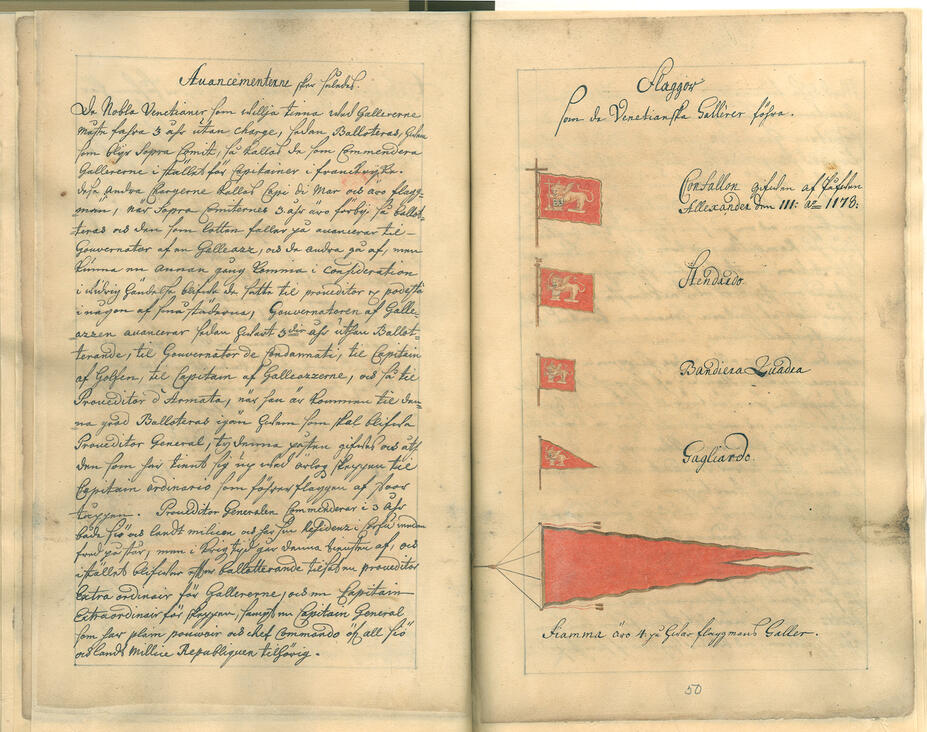 Auancementerne sker således.
De Nobla Venetianer som willja tienna wid Gallererne
måste fahra 3 åhr utan charge, sedan Balloteras,
som blifr Sopra Comit, så kallas de som Commendera
Gallererne i stället för Capitainer i franckryke.
desse andra Chargerne kallas Capi di Mar och äro flagg-
män, när Sopra Comiternes 3 åhr äro förbij så ballot-
teras och den som lotten fallar på avancerar til
Gouvernator af en Galleasz, och de andra gå af, men
kunna en annan gång komma i Consideration
i widrig händelse blifwa de satte til proueditor ey podestà
i någon af småstäderna, Gouvernatoren af Galle-
azzen avancerar sedan hwart 3die åhr uthan Ballot-
terande, til Gouvernator de Condannati, til Capitain
af Golfen, til Capitain af Galleazzerne, och så til
Proveditor d'Armata, när han är kommen til den-
na grad Balloteras igän hwem som skal blifwa
Proveditor General, ty denna posten gifwes och åth
den som har tient sig up wid örlog skeppen til
Capitain ordinario som förer flaggen af stoor
toppen. Proueditor Generalen Commenderar i 3 åhr
både siö och landt milicen och har sin Residenz i Corfu
fred påstår, men i krigstijd går denna tiensten af, och
i stället blifwer ballotterande tilsatt en proveditor
Extra ordinair för Gallererne, och en Capitain
Extraordinair för skeppen, sampt en Capitain General
som har plain pouvoir och chef Commando öf. all siö
och landt Millice Republiquen tilhörig.
Flaggor
som de Venetianska Gallerer föhra.
Confallon gifwen af Påfwen
Allexander dnn III: Ao 1178:
Stendardo.
Bandiera Quadra
Gagliardo.
Fiamma äro 4 på hwar flaggmans Galler.
50